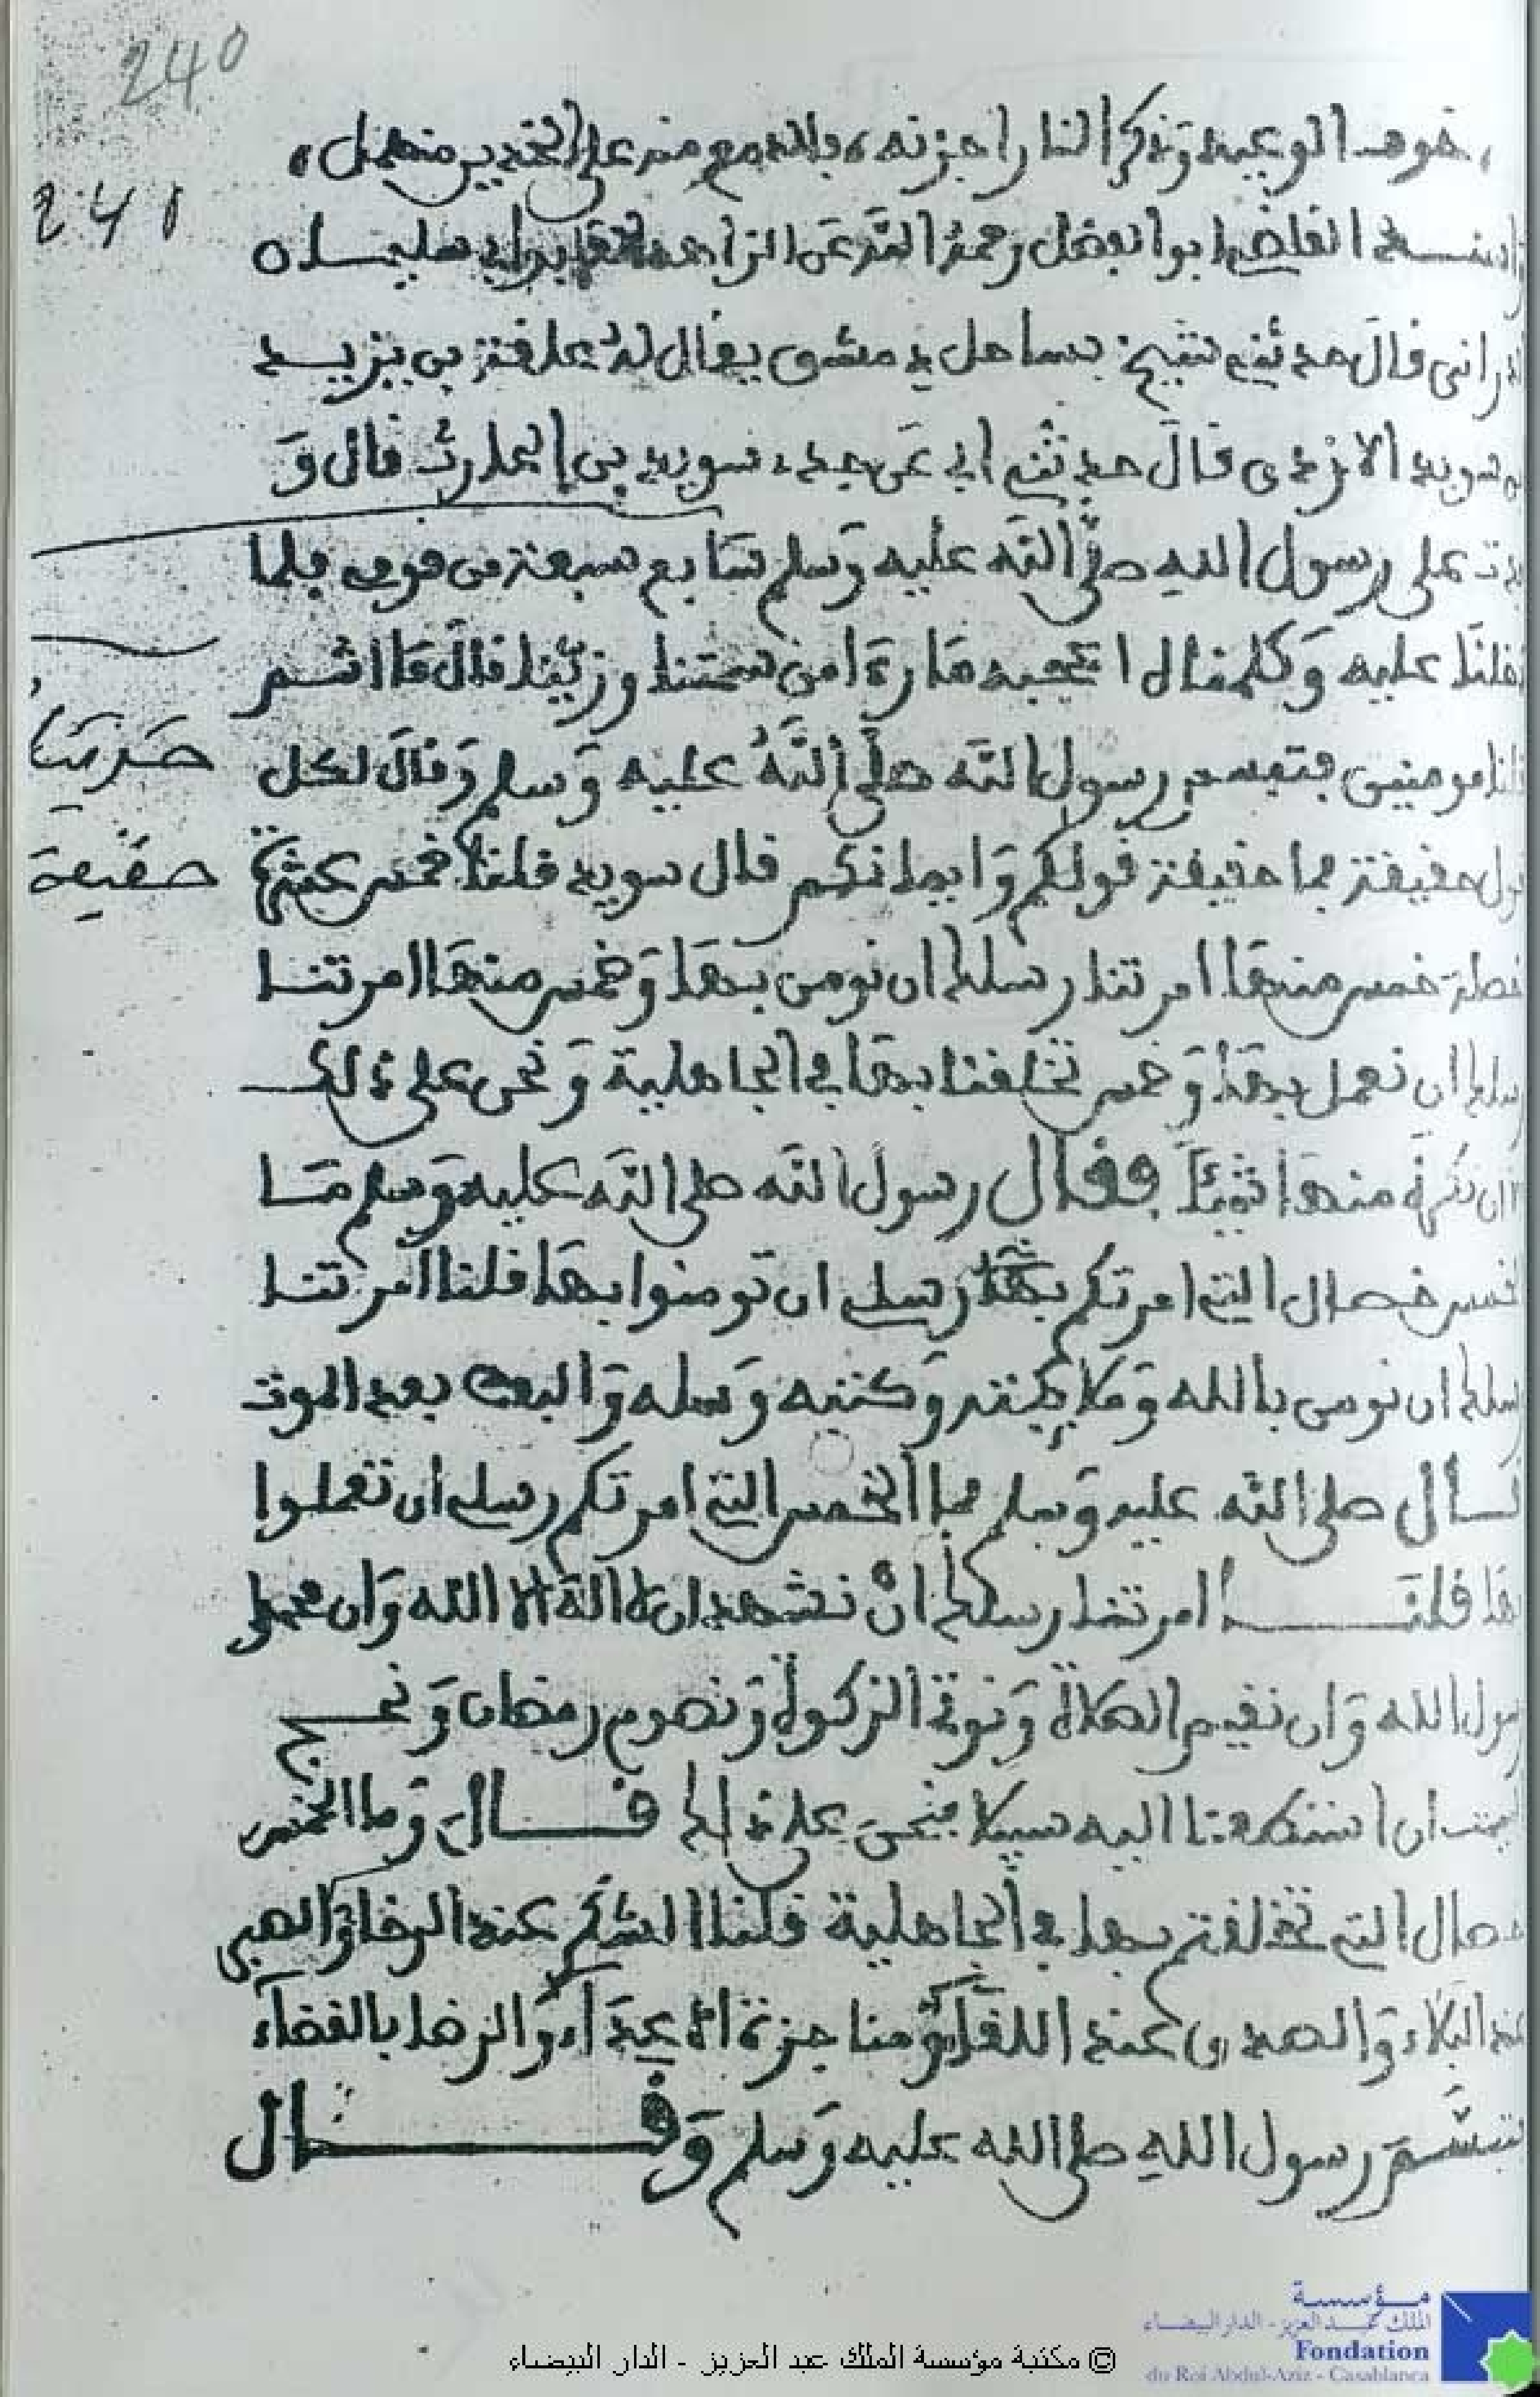 240
241
خوف الوعيد وذكر النار احزنه، بالدمع منه على الخدين منهمل،
القاضي ابو الفضل رحمه الله عن الزاهد سليمان
الدراني قال حدثني شيخ بساحل دمشق يقال له علقمة بن يزيد
سويد الازدي قال حدثني ابي عن جده سويد بن الحارث قال و
على رسول الله صلى الله عليه وسلم سابع سبعة من قومي فلما
عليه وكلمناه اعجبه ما رءا من سمتنا وزينا فقال ما انتم
مومنين فتبسم رسول الله صلى الله عليه وسلم وقال لكل
قول حقيقة فما حقيقة قولكم وايمانكم قال سويد قلنا خمس عشرة
حديث
حقيقة
خصلة خمس منها امرتنا رسلك ان نومن بها وخمس منها امرتنا
رسلك ان نعمل بها وخمس تخلقنا بها في الجاهلية ونحن على ذلك
ان تكره منها شيئا فقال رسول الله صلى الله عليه وسلم ما
خمس خصال التي امرتكم بها رسلي ان تومنوا بها قلنا امرتنا
رسلك ان نومن بالله وملايكته وكتبه ورسله والبعث بعد الموت
قال صلى الله عليه وسلم فما الخمس التي امرتكم رسلي ان تعملوا
بها قلنا امرتنا رسلك ان نشهد ان لا اله الا الله وان محمدا
رسول الله وان نقيم الصلاة ونوتي الزكوة ونصوم رمضان ونحج
البيت ان استطعنا اليه سبيلا فنحن على ذلك قال وما الخمس
خصال التي تخلقتم بها في الجاهلية قلنا الشكر عند الرخا والصبر
عند البلاء والصدق عند اللقاء الاعداء والرضا بالقضاء
فتبسم رسول الله صلى الله عليه وسلم وقال
© مكتبة مؤسسة الملك عبد العزيز - الدار البيضاء
مؤسسة
الملك عبد العزيز - الدار البيضاء
Fondation
du Roi Abdul-Aziz - Casablanca